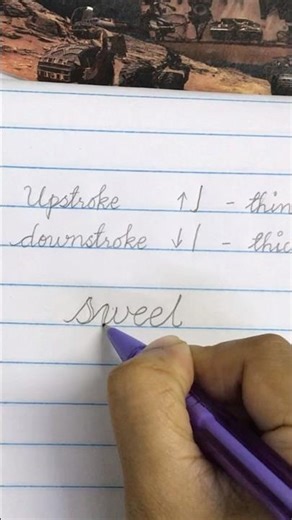 Upstroke ↑ | - thin
downstroke ↓ | - thic
sweel